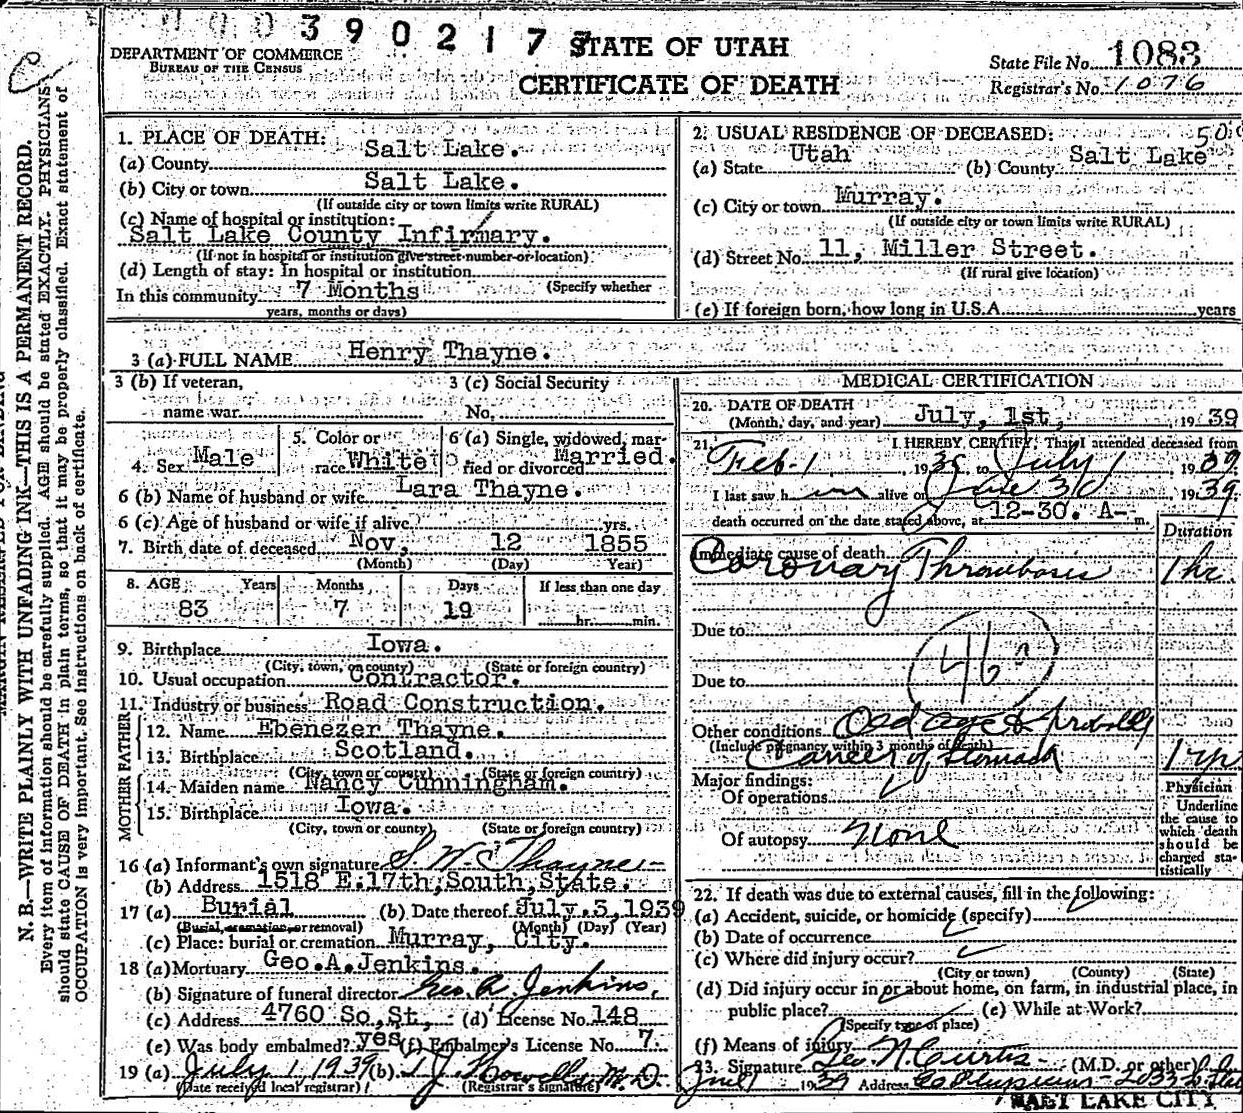 390217
STATE OF UTAH
CERTIFICATE OF DEATH
DEPARTMENT OF COMMERCE
BUREAU OF THE CENSUS
State File No. 1083
Registrar's No. 1076
N. B.—WRITE PLAINLY WITH UNFADING INK—THIS IS A PERMANENT RECORD.
Every item of information should be carefully supplied. AGE should be stated EXACTLY. PHYSICIANS
should state CAUSE OF DEATH in plain terms, so that it may be properly classified. Exact statement of
OCCUPATION is very important. See instructions on back of certificate.
1. PLACE OF DEATH:
(a) County Salt Lake.
(b) City or town Salt Lake.
(If outside city or town limits write RURAL)
(c) Name of hospital or institution:
Salt Lake County Infirmary.
(If not in hospital or institution give street number or location)
(d) Length of stay: In hospital or institution
(Specify whether
In this community 7 Months
years, months or days)
2. USUAL RESIDENCE OF DECEASED:
(a) State Utah (b) County Salt Lake
(c) City or town Murray.
(If outside city or town limits write RURAL)
(d) Street No. 11, Miller Street.
(If rural give location)
(e) If foreign born, how long in U.S.A. years
3 (a) FULL NAME Henry Thayne.
3 (b) If veteran,
name war
3 (c) Social Security
No.
4. Sex Male
5. Color or
race White
6 (a) Single, widowed, mar-
ried or divorced Married.
6 (b) Name of husband or wife Lara Thayne.
6 (c) Age of husband or wife if alive yrs.
7. Birth date of deceased Nov, 12 1855
(Month) (Day) Year)
8. AGE Years Months Days If less than one day
83 7 19 hr. min.
9. Birthplace Iowa.
(City, town, or county) (State or foreign country)
10. Usual occupation Contractor.
11. Industry or business Road Construction.
FATHER
12. Name Ebenezer Thayne.
13. Birthplace Scotland.
(City, town or county) (State or foreign country)
MOTHER
14. Maiden name Nancy Cunningham.
15. Birthplace Iowa.
(City, town or county) (State or foreign country)
16 (a) Informant's own signature S. W. Thayne
(b) Address 1518 E. 17th, South, State.
17 (a) Burial (b) Date thereof July. 3, 1939
(Burial, cremation, or removal) (Month) (Day) (Year)
(c) Place: burial or cremation Murray, City.
18 (a) Mortuary Geo. A. Jenkins.
(b) Signature of funeral director Geo. A. Jenkins.
(c) Address 4760 So, St, (d) License No. 148
(e) Was body embalmed? yes (f) Embalmer's License No. 7.
19 (a) July 1, 1939 (b) M.D.
(Date received local registrar) (Registrar's signature)
MEDICAL CERTIFICATION
20. DATE OF DEATH
(Month, day, and year) July, 1st, 1939
21. I HEREBY CERTIFY, That I attended deceased from
Feb 1, 1939 to July 1 1939
I last saw him alive on June 30, 1939.
death occurred on the date stated above, at 12-30. A- m.
Duration
Immediate cause of death
Coronary Thrombosis 1 hr.
Due to
46
Due to
Other conditions Old age & probably
(Include pregnancy within 3 months of death)
Cancer of stomach 1 yr
Major findings:
Of operations
Of autopsy None
Physician
Underline
the cause to
which death
should be
charged sta-
tistically
22. If death was due to external causes, fill in the following:
(a) Accident, suicide, or homicide (specify)
(b) Date of occurrence
(c) Where did injury occur?
(City or town) (County) (State)
(d) Did injury occur in or about home, on farm, in industrial place, in
public place? (e) While at Work?
(Specify type of place)
(f) Means of injury
23. Signature Geo. N. Curtis (M.D. or other)
1939 Address
SALT LAKE CITY